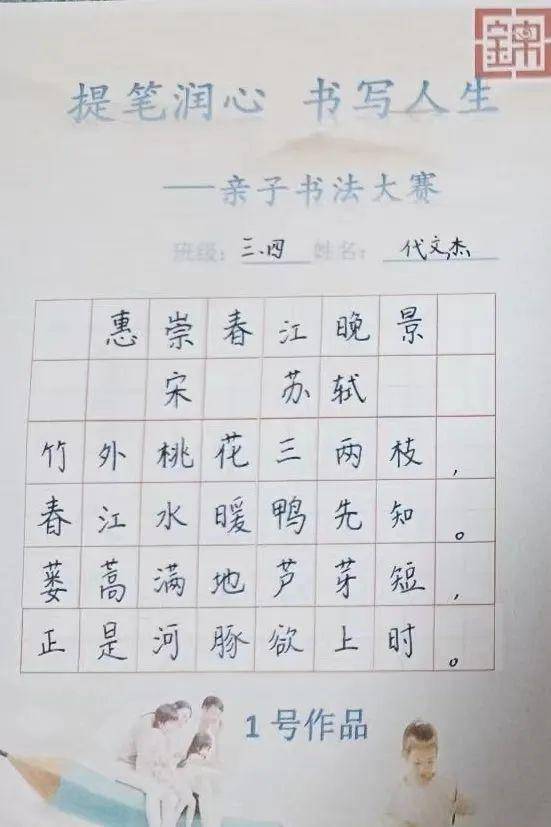 錦
提笔润心 书写人生
——亲子书法大赛
班级：三.四 姓名：代文杰
惠崇春江晚景
宋 苏轼
竹外桃花三两枝，
春江水暖鸭先知。
蒌蒿满地芦芽短，
正是河豚欲上时。
1号作品